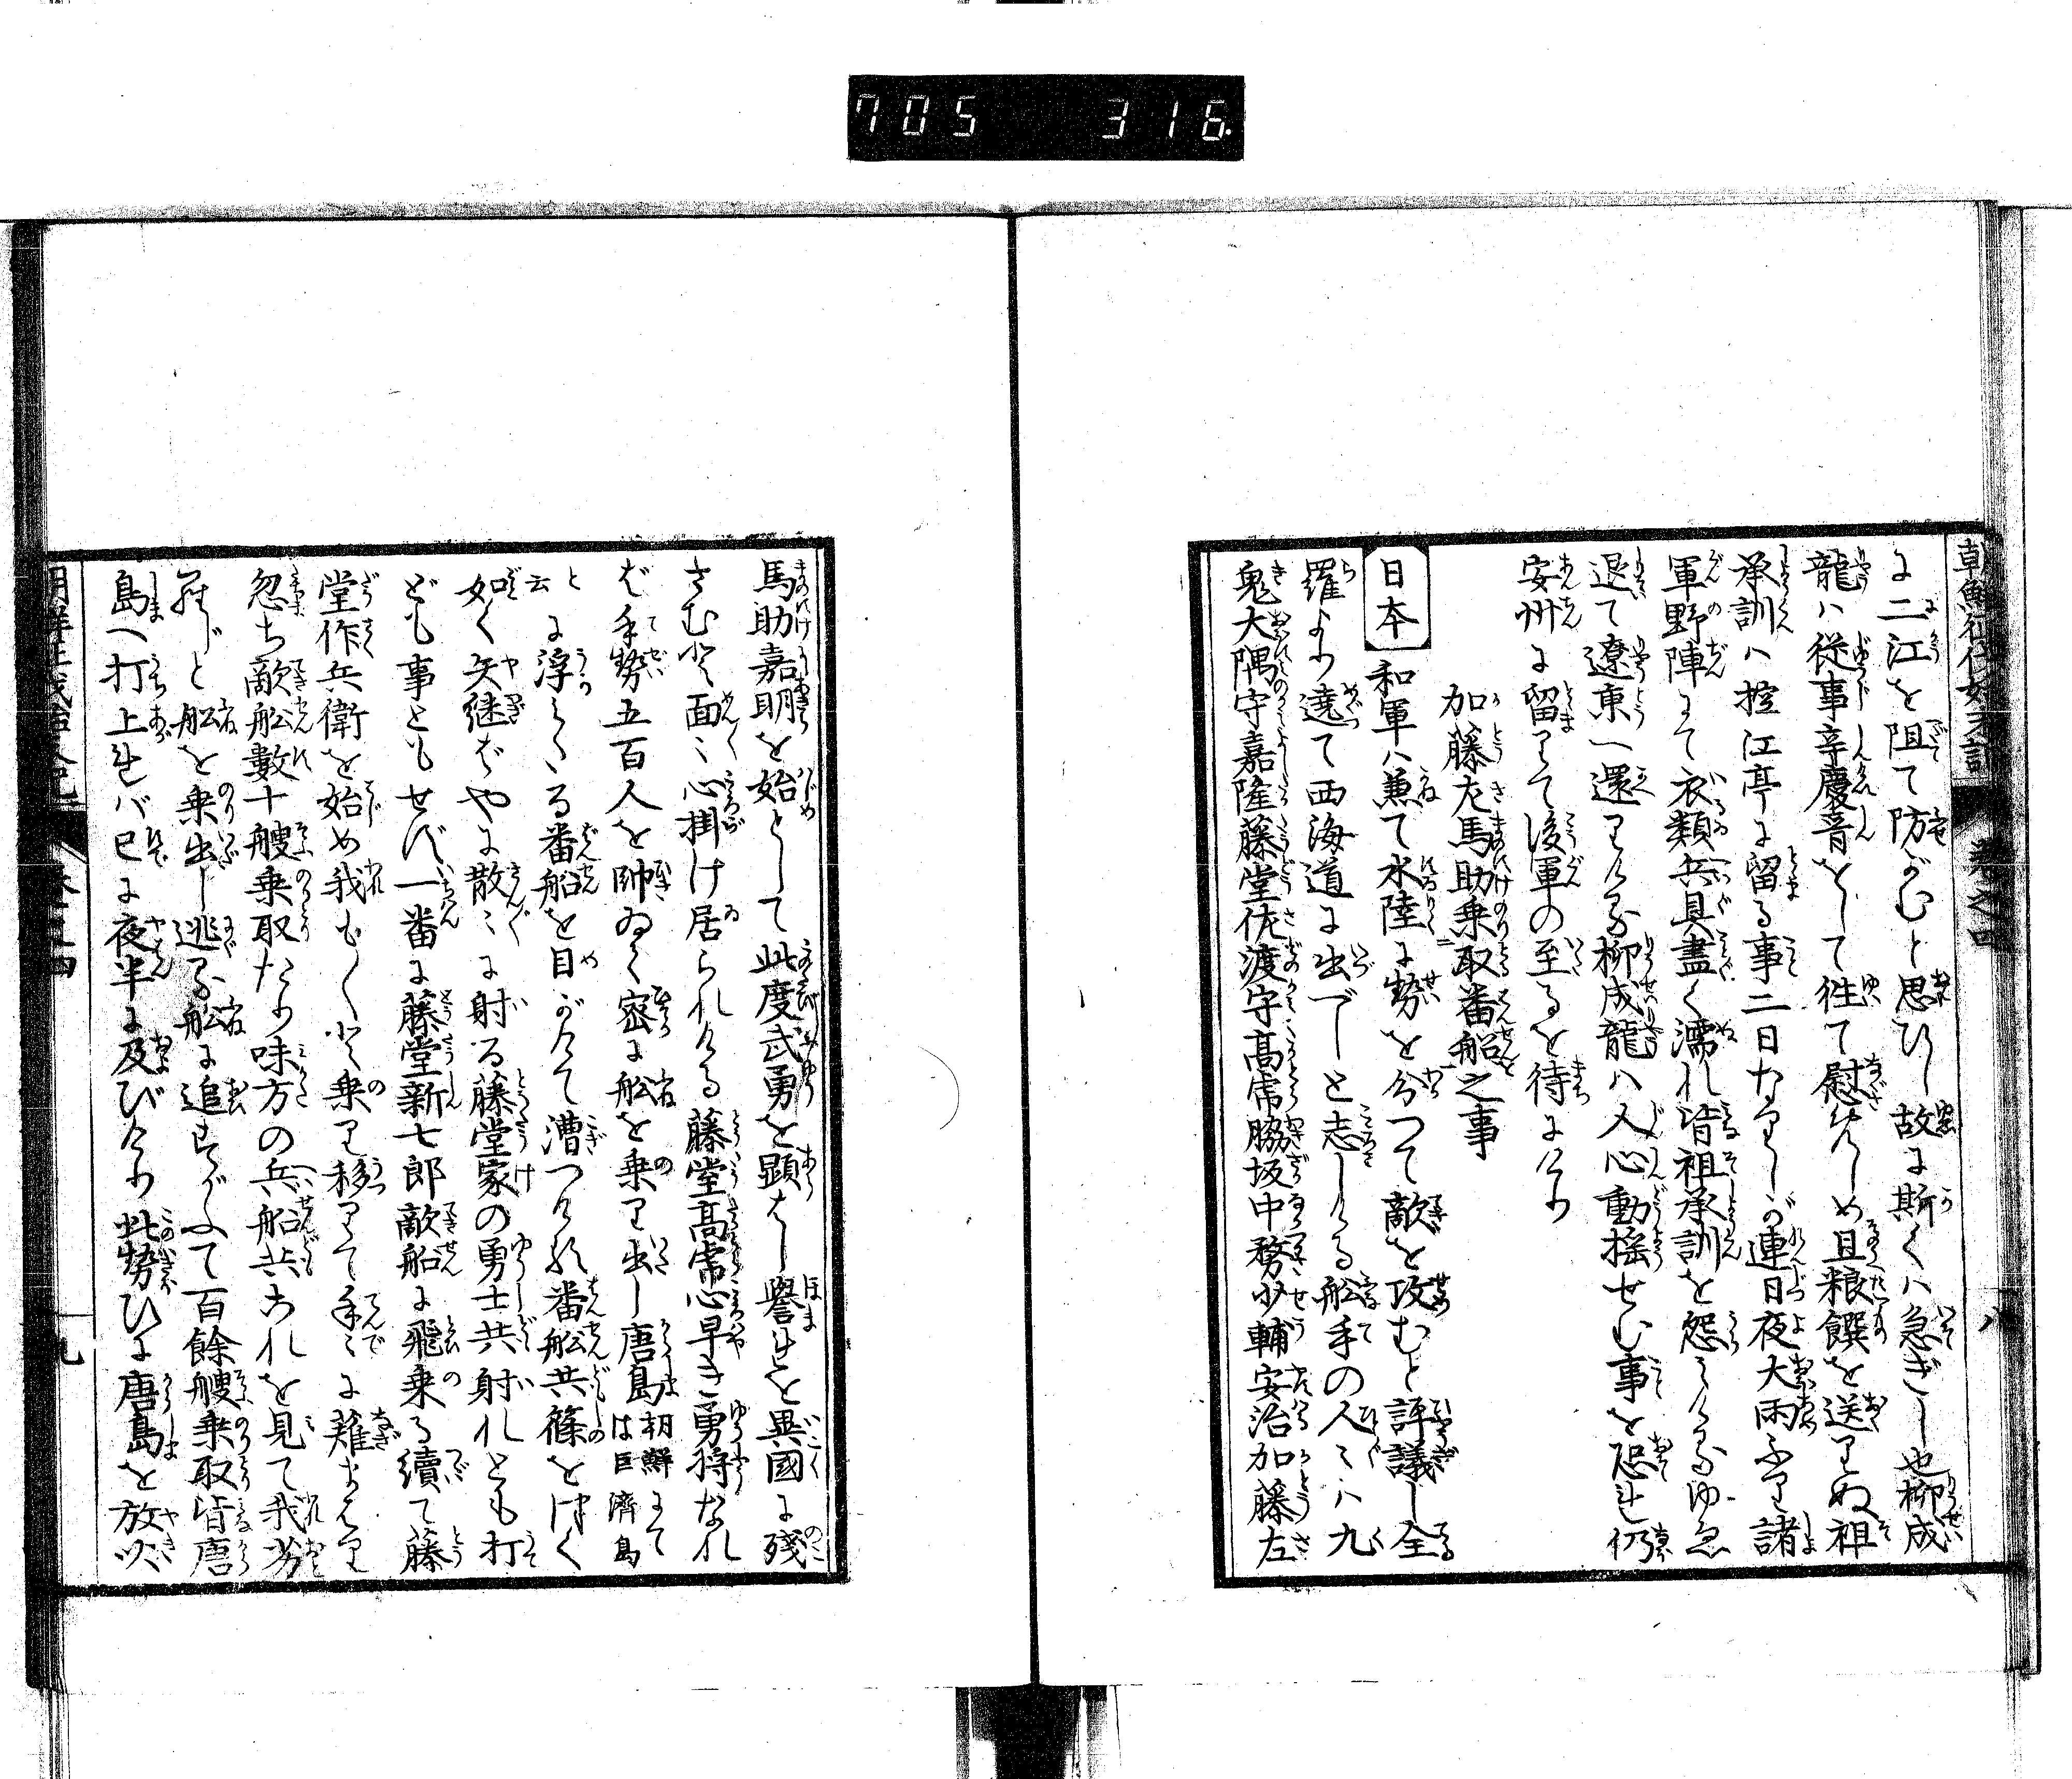 705 316
朝鮮征伐始末記 巻之四 八
に二江を阻て防がむと思ひし故に斯くハ急ぎし也柳成
龍ハ従事辛慶晋をして徃て慰めしめ且粮饌を送りぬ祖
承訓ハ控江亭に留る事二日なりしが連日夜大雨ふり諸
軍野陣にて衣類兵具盡く濡れ皆祖承訓を怨みけるゆゑ
退て遼東へ還りける柳成龍ハ人心動揺せむ事を恐れ仍
安州に留りて後軍の至るを待にけり
加藤左馬助乗取番船之事
日本 和軍ハ兼て水陸に勢を分つて敵を攻むと評議し全
羅より遶て西海道に出でしと志しける舩手の人々ハ九
鬼大隅守嘉隆藤堂佐渡守高虎脇坂中務少輔安治加藤左
馬助嘉明を始として此度武勇を顕はし譽れを異國に残
さむと面々心掛け居られける藤堂高虎心早き勇将なれ
ば手勢五百人を帥ゐて密に舩を乗り出し唐島朝鮮にては巨濟島
と云に浮べたる番船を目がけて漕つけるに番舩共篠をつく
如く矢継ばやに散々に射る藤堂家の勇士共射れども打
ども事ともせず一番に藤堂新七郎敵船に飛乗る續て藤
堂作兵衛を始め我も〱と乗り移りて手々に薙まはり
忽ち敵舩數十艘乗取たり味方の兵船共これを見て我劣
らじと舩を乗出し逃る舩に追すがふて百餘艘乗取皆唐
島へ打上れバ已に夜半に及びけり此勢ひに唐島を放火
朝鮮征伐始末記 巻之四 九